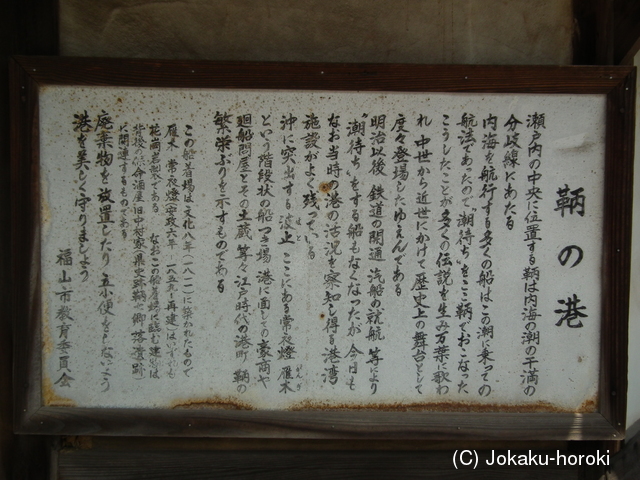 鞆の港
瀬戸内の中央に位置する鞆は内海の潮の干満の
分岐線にあたる
内海を航行する多くの船はこの潮に乗っての
航法であったので、潮待ちをここ鞆でおこなった
こうしたことが多くの伝説を生み万葉に歌わ
れ 中世から近世にかけて歴史上の舞台として
度々登場したゆえんである
明治以後 鉄道の開通 汽船の就航 等により
“潮待ち”をする船もなくなったが 今日も
なお当時の港の活況を察知し得る港湾
施設がよく残っている
沖に突出する波止 ここにある常夜燈 雁木
はと
がんぎ
という階段状の船つき場 港に面しての豪商や
廻船問屋とその土蔵 等々江戸時代の港町 鞆の
繁栄ぶりを示すものである
この船着場は文化八年(一八一一)に築かれたもので
雁木 常夜燈(安政六年 一八五九 再建)はいずれも
花崗岩製である なおこの船着場に臨む建物は
背後の保命酒屋旧中村家(県史跡鞆七卿落遺跡)
に関連するものである
廃棄物を放置したり 立小便をしないよう
港を美しく守りましょう
福山市教育委員会
(C) Jokaku-horoki